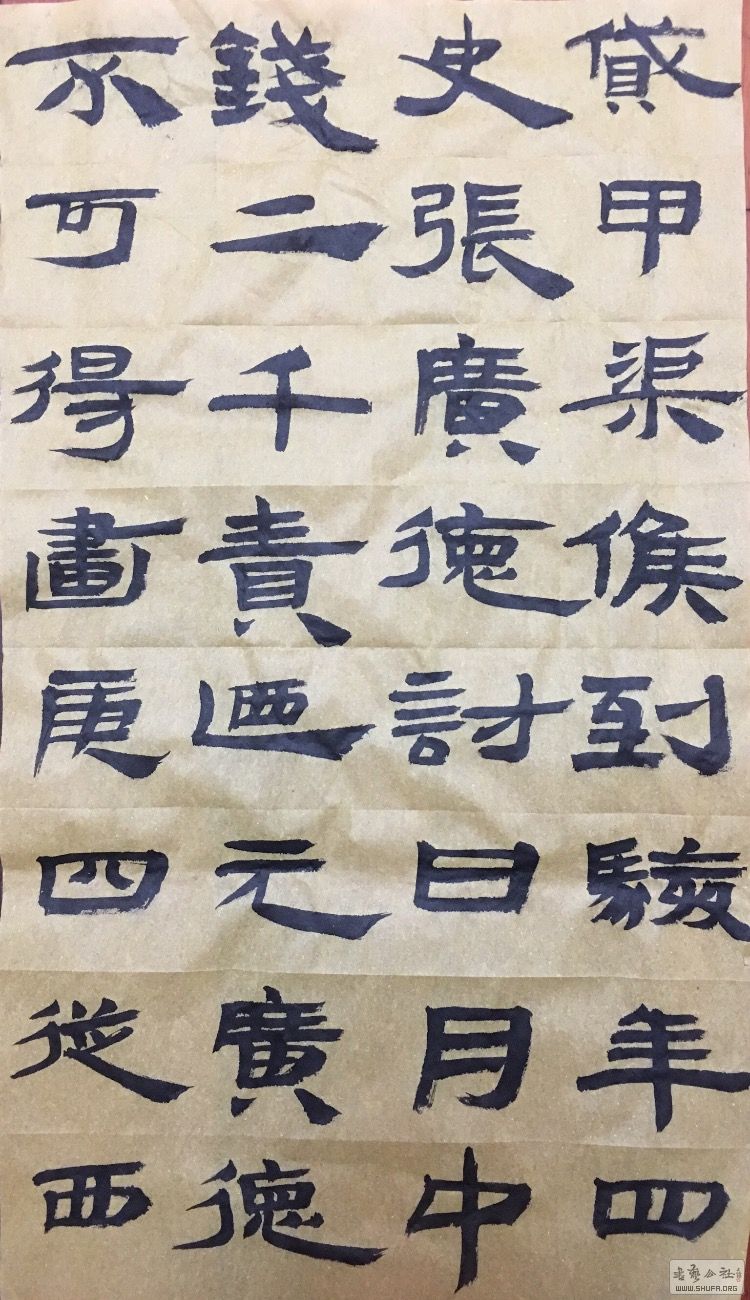 貸甲渠候到駿年四
史張廣德討曰月中
錢二千責迺元廣德
不可得畫庚四從西
書藝公社
WWW.SHUFA.ORG